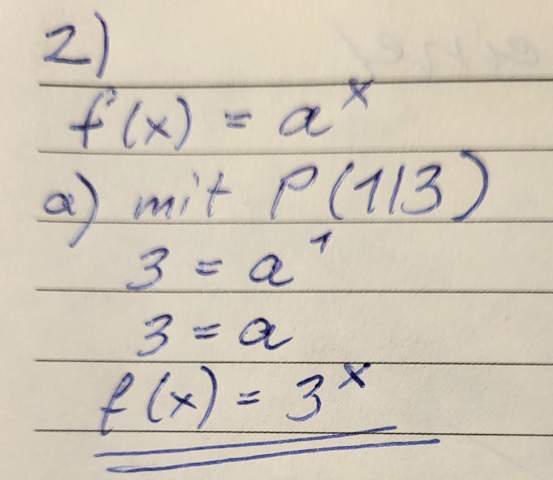 2)
f(x) = a^x
a) mit P(1|3)
3 = a^1
3 = a
f(x) = 3^x